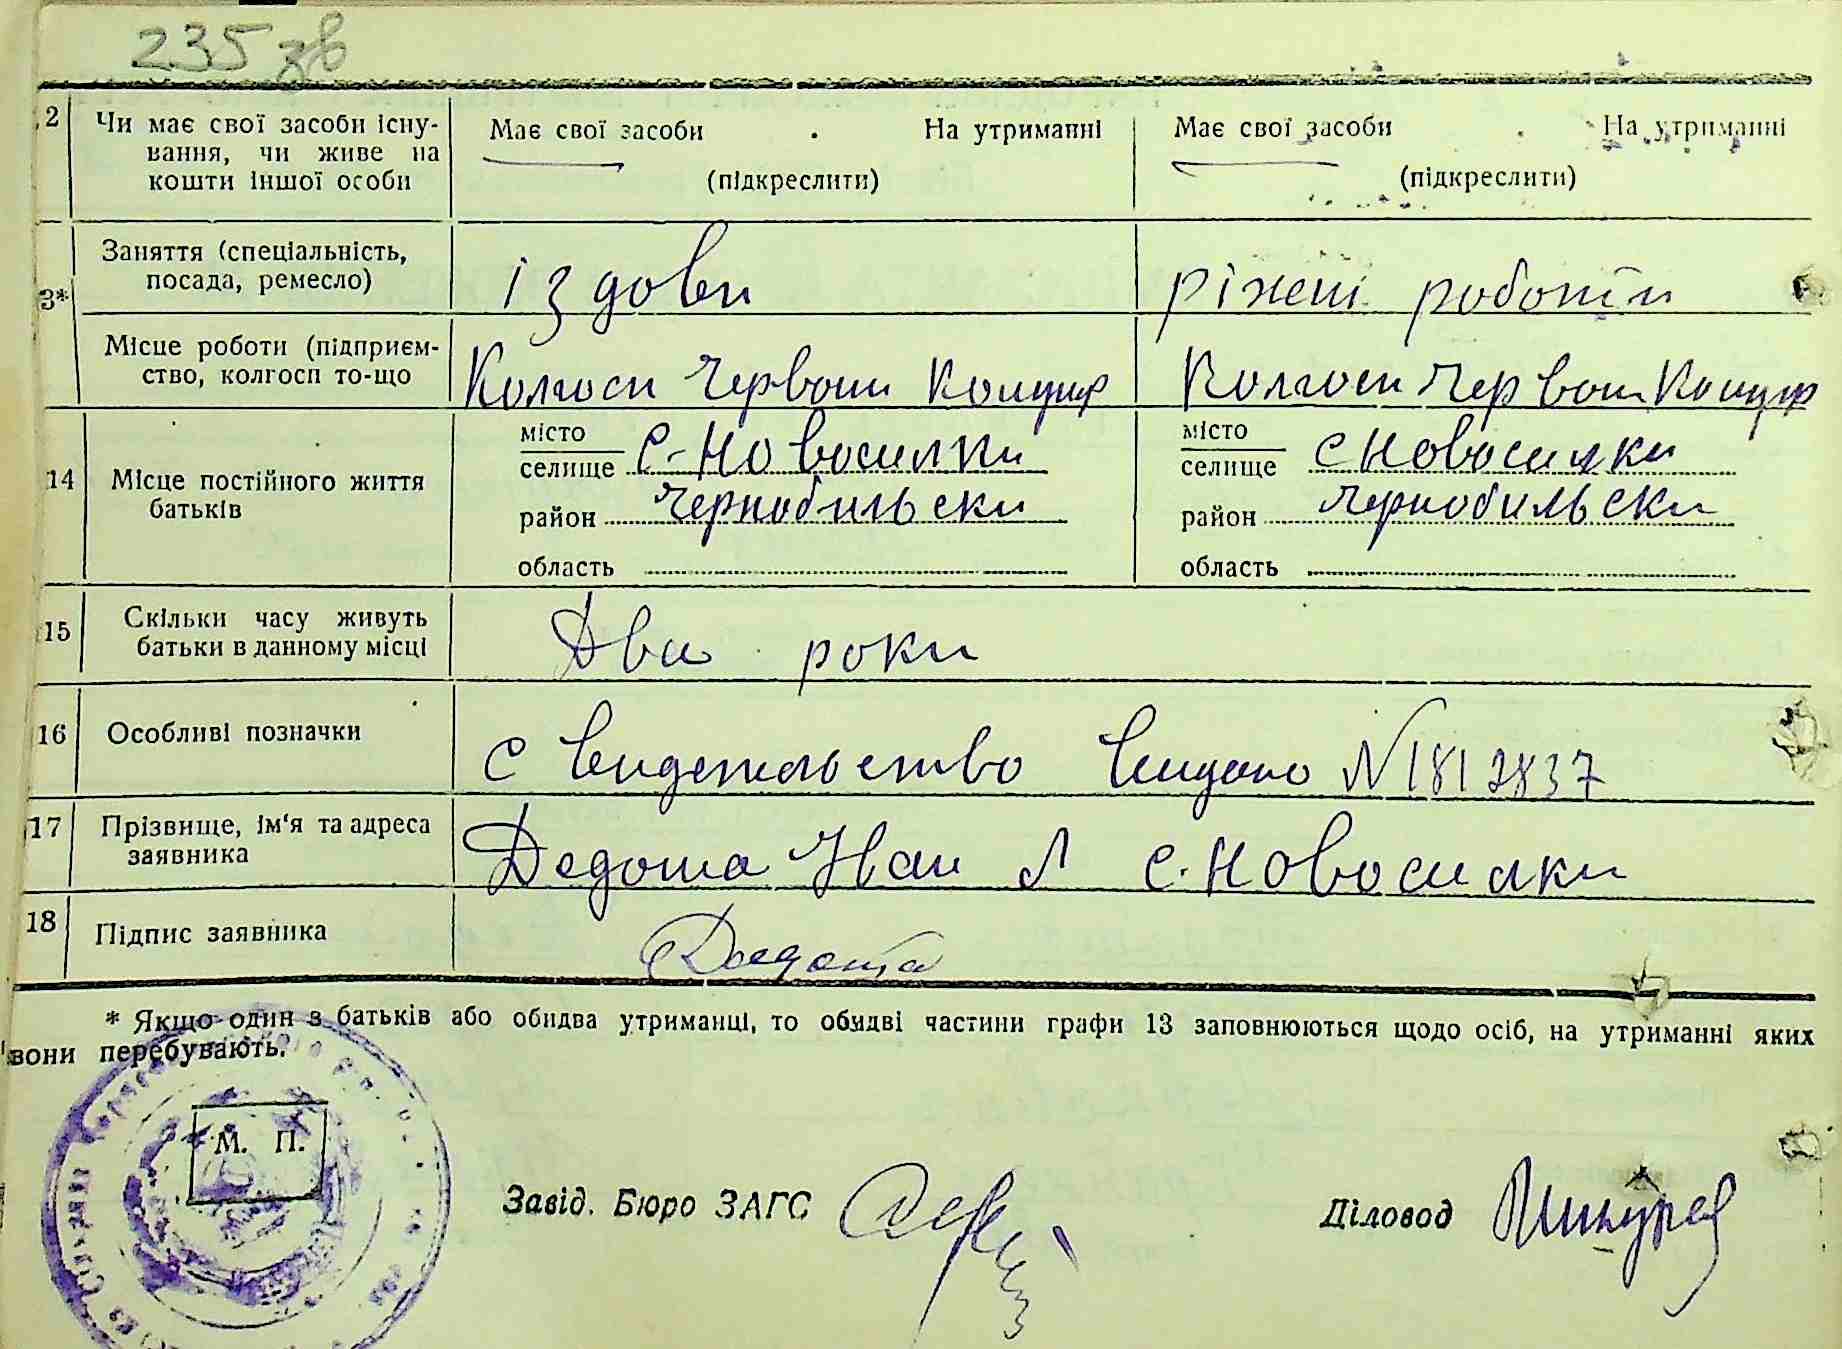 235 зв
2 Чи має свої засоби існу- Має свої засоби . На утриманні Має свої засоби . На утриманні
вання, чи живе на
кошти іншої особи (підкреслити) (підкреслити)
Заняття (спеціальність,
посада, ремесло) іздови ріжені роботи
3*
Місце роботи (підприєм-
ство, колгосп то-що Колгосп Червони Колгосп Червони
місто с. Новосилки місто с Новосилки
селище селище
14 Місце постійного життя
батьків район Чернобильски район Чернобильски
область область
15 Скільки часу живуть
батьки в данному місці Два роки
16 Особливі позначки Свидетельство видано № 1812837
17 Прізвище, ім'я та адреса
заявника Дедоша Иван Л с. Новосилки
18 Підпис заявника
* Якщо один з батьків або обидва утриманці, то обидві частини графи 13 заповнюються щодо осіб, на утриманні яких
вони перебувають.
М. П.
Завід. Бюро ЗАГС Діловод